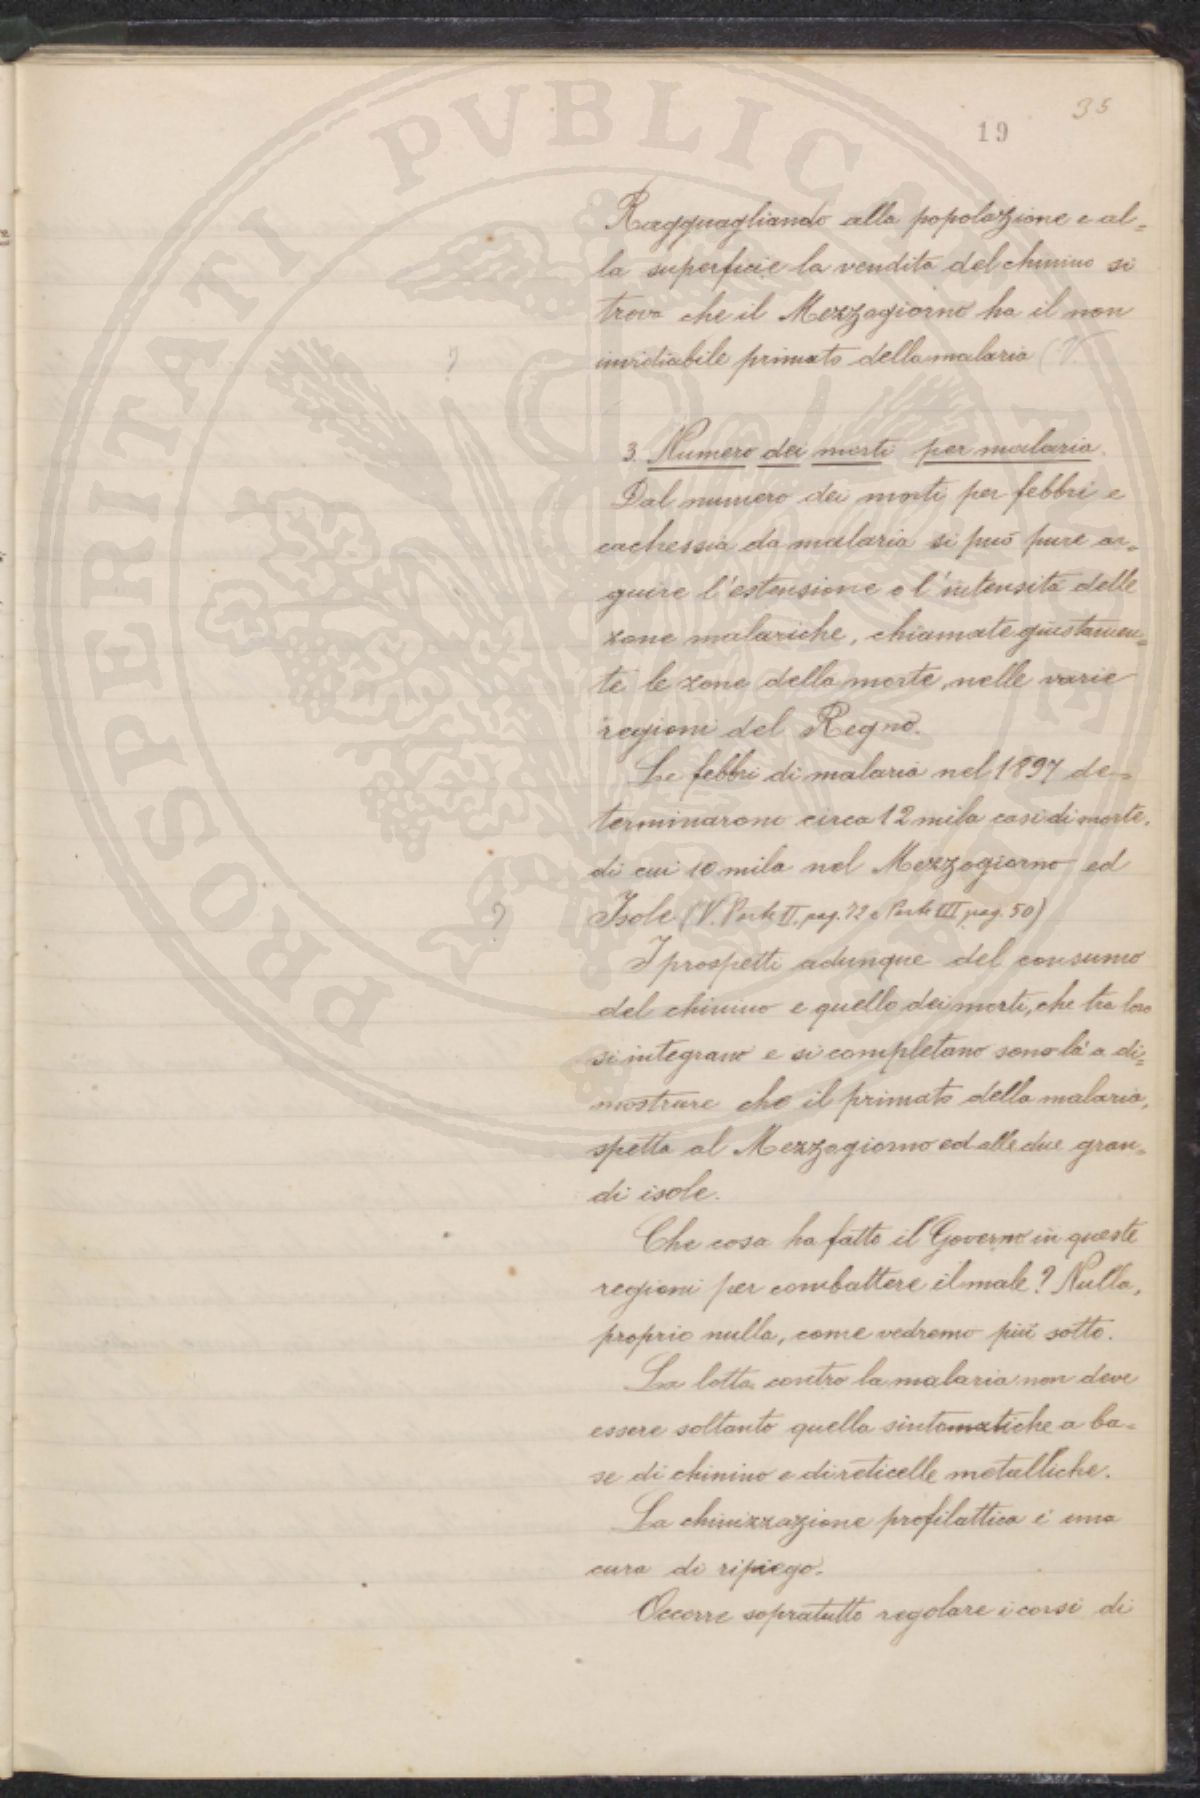 35
19
Ragguagliando alla popolazione e al=
la superficie la vendita del chinino si
trova che il Mezzogiorno ha il non
? invidiabile primato della malaria (V.
3. Numero dei morti per malaria.
Dal numero dei morti per febbri e
cachessia da malaria si può pure ar=
guire l'estensione e l'intensità delle
zone malariche, chiamate giustamen=
te le zone della morte, nelle varie
regioni del Regno.
Le febbri di malaria nel 1897 de=
terminarono circa 12 mila casi di morte,
di cui 10 mila nel Mezzogiorno ed
? Isole (V. Parte II, pag. 72 e Parte III, pag. 50)
I prospetti adunque del consumo
del chinino e quello dei morti, che tra loro
si integrano e si completano sono là a di=
mostrare che il primato della malaria,
spetta al Mezzogiorno ed alle due gran=
di isole.
Che cosa ha fatto il Governo in queste
regioni per combattere il male? Nulla,
proprio nulla, come vedremo più sotto.
La lotta contro la malaria non deve
essere soltanto quella sintomatiche a ba=
se di chinino e di reticelle metalliche.
La chinizzazione profilattica è una
cura di ripiego.
Occorre sopratutto regolare i corsi di
PVBLICAE
PROSPERITATI